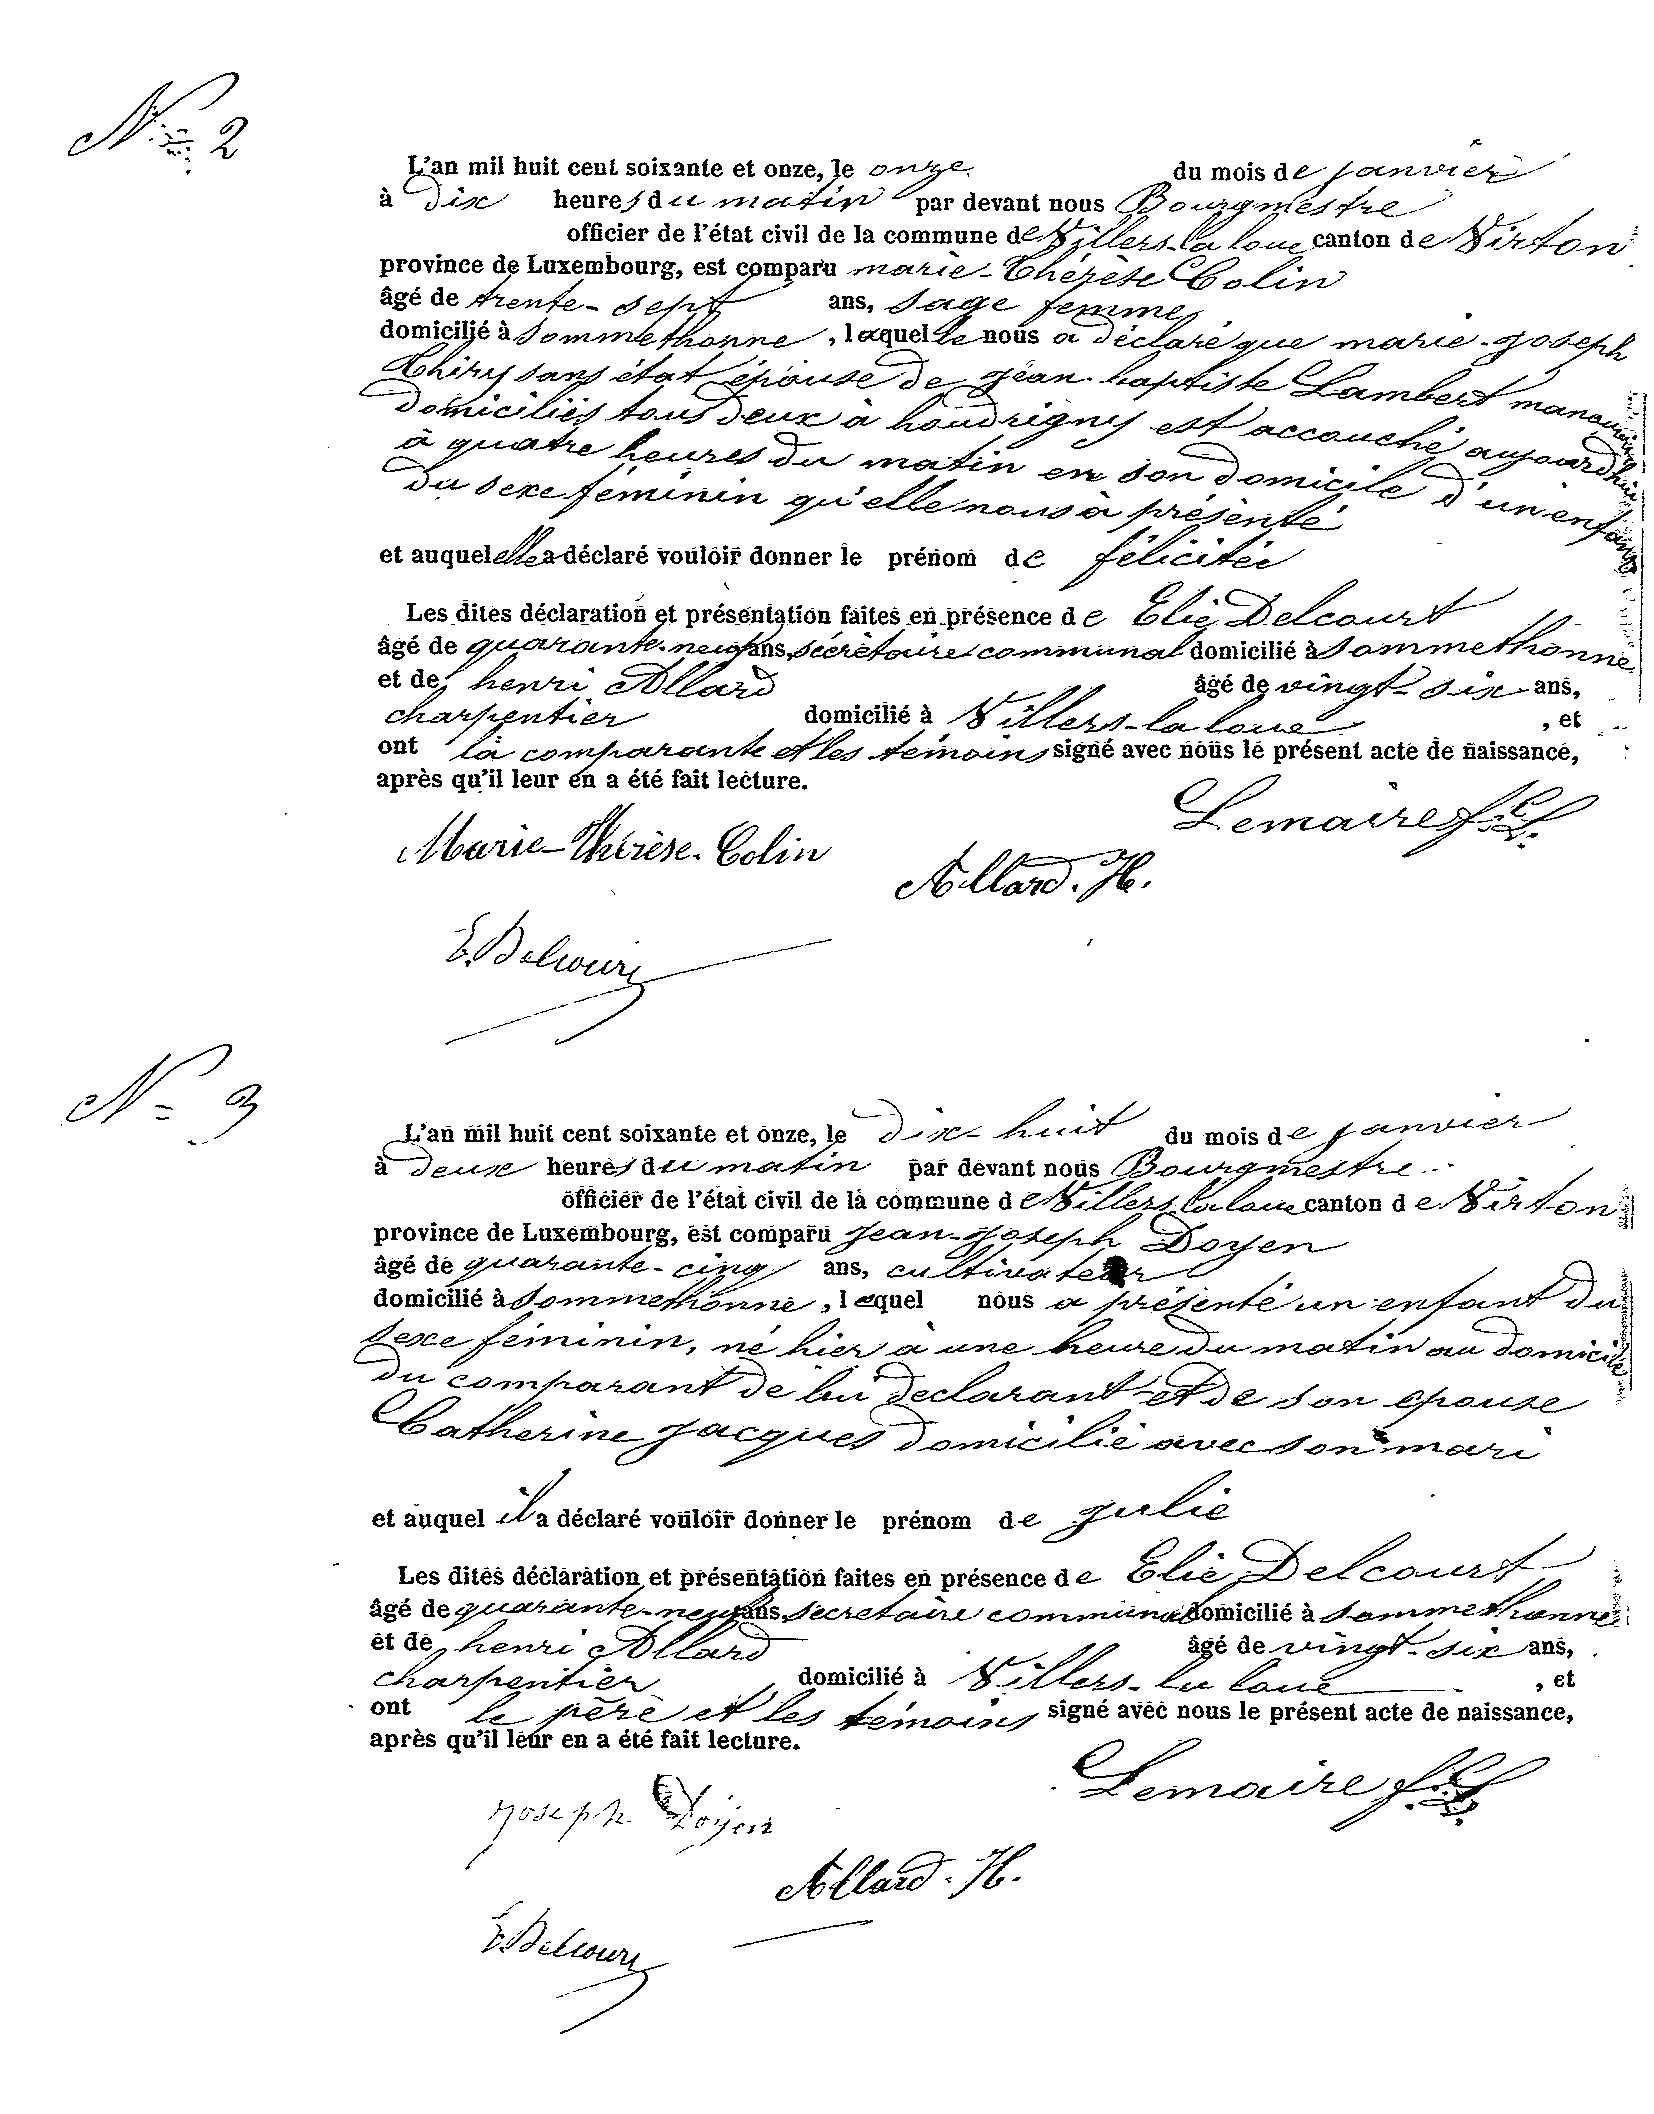 N° 2
L'an mil huit cent soixante et onze, le onze du mois de janvier
à dix heures du matin par devant nous Bourgmestre
officier de l'état civil de la commune de Villers-la loue canton de Virton
province de Luxembourg, est comparu marie-Thérèse Colin
âgé de trente-sept ans, sage femme
domicilié à Sommethonne, laquelle nous a déclaré que marie-joseph
Thiry sans état épouse de jean-baptiste Lambert manouvrier
domiciliés tous deux à houdrigny est accouché aujourd'hui
à quatre heures du matin en son domicile d'un enfant
du sexe féminin qu'elle nous à présenté
et auquel elle a déclaré vouloir donner le prénom de félicitée
Les dites déclaration et présentation faites en présence de Elie Delcourt
âgé de quarante-neuf ans, sécrètaire communal domicilié à Sommethonne
et de henri Allard âgé de vingt-six ans,
charpentier domicilié à Villers-la loue, et
ont la comparante et les témoins signé avec nous le présent acte de naissance,
après qu'il leur en a été fait lecture.
Lemaire
Marie-Thérèse-Colin
Allard. H.
E. Delcourt
N= 3
L'an mil huit cent soixante et onze, le dix-huit du mois de janvier
à deux heures du matin par devant nous Bourgmestre
officier de l'état civil de la commune de Villers la loue canton de Virton
province de Luxembourg, est comparu jean-joseph Doyen
âgé de quarante-cinq ans, cultivateur
domicilié à Sommethonne, lequel nous a présenté un enfant du
sexe féminin, né hier à une heure du matin au domicile
du comparant de lui declarant et de son epouse
Catherine jacques domicilié avec son mari
et auquel il a déclaré vouloir donner le prénom de julie
Les dites déclaration et présentation faites en présence de Elie Delcourt
âgé de quarante-neuf ans, secretaire communal domicilié à Sommethonne
et de henri Allard âgé de vingt-six ans,
charpentier domicilié à Villers-la loue, et
ont le père et les témoins signé avec nous le présent acte de naissance,
après qu'il leur en a été fait lecture.
Lemaire
joseph Doyen
Allard. H.
E. Delcourt